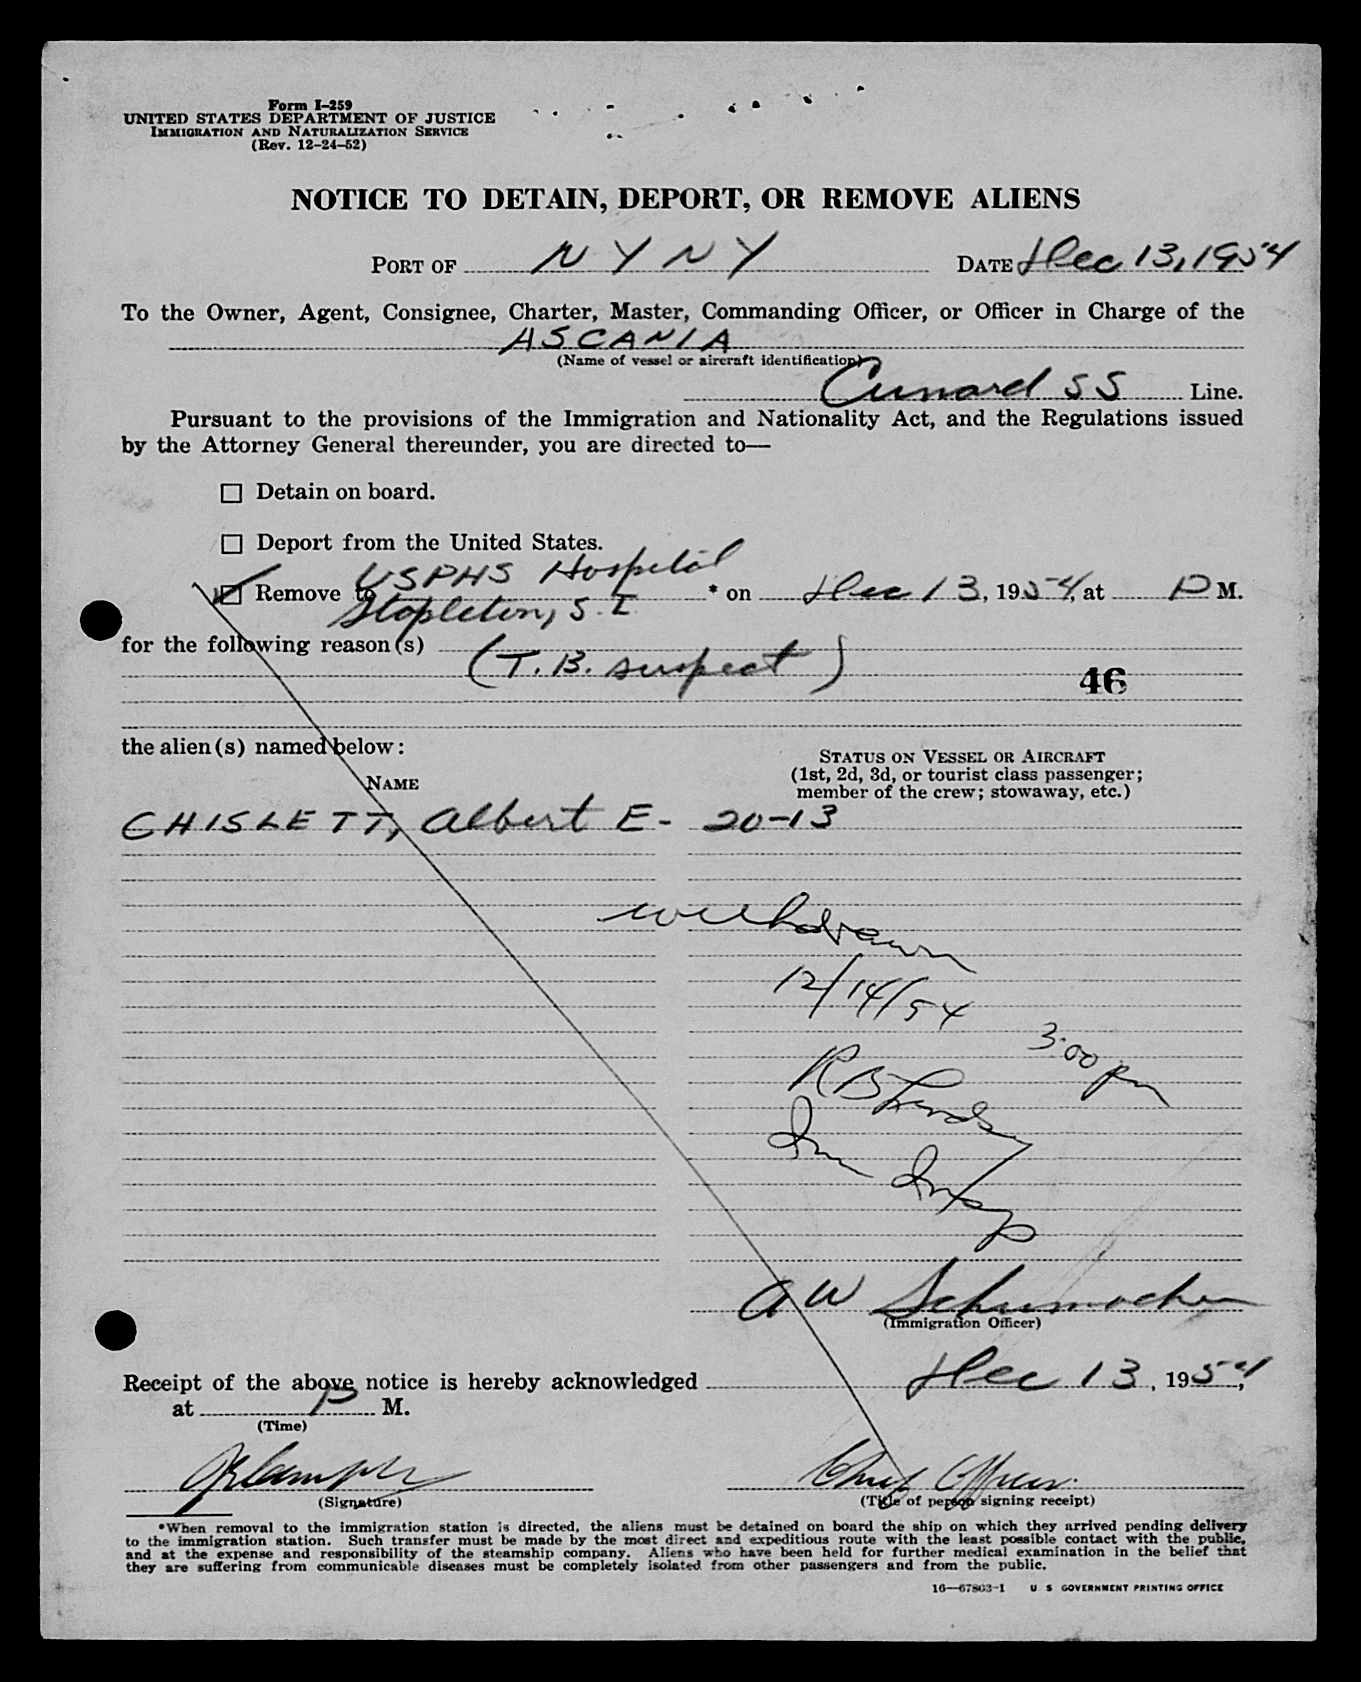 Form I-259
UNITED STATES DEPARTMENT OF JUSTICE
IMMIGRATION AND NATURALIZATION SERVICE
(Rev. 12-24-52)
NOTICE TO DETAIN, DEPORT, OR REMOVE ALIENS
PORT OF N Y N Y DATE Dec 13, 1954
To the Owner, Agent, Consignee, Charter, Master, Commanding Officer, or Officer in Charge of the
ASCANIA
(Name of vessel or aircraft identification)
Cunard SS Line.
Pursuant to the provisions of the Immigration and Nationality Act, and the Regulations issued
by the Attorney General thereunder, you are directed to—
☐ Detain on board.
☐ Deport from the United States.
USPHS Hospital
Remove to * on Dec 13, 1954, at P M.
Stapleton, S. I.
for the following reason(s)
(T.B. suspect)
46
the alien(s) named below:
STATUS ON VESSEL OR AIRCRAFT
NAME (1st, 2d, 3d, or tourist class passenger;
member of the crew; stowaway, etc.)
CHISLETT, Albert E- 20-13
withdrawn
12/14/54
3:00 pm
R B Lindsy
Imm Insp
A W Schumacher
(Immigration Officer)
Dec 13, 1954,
Receipt of the above notice is hereby acknowledged
at P M.
(Time)
Chief Officer
(Signature) (Title of person signing receipt)
*When removal to the immigration station is directed, the aliens must be detained on board the ship on which they arrived pending delivery
to the immigration station. Such transfer must be made by the most direct and expeditious route with the least possible contact with the public,
and at the expense and responsibility of the steamship company. Aliens who have been held for further medical examination in the belief that
they are suffering from communicable diseases must be completely isolated from other passengers and from the public.
16—67863-1 U S GOVERNMENT PRINTING OFFICE